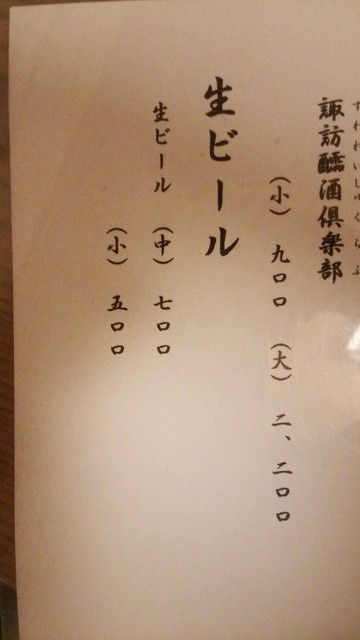 諏訪醽酒倶楽部
すわれいしゅくらぶ
(小) 九〇〇 (大) 二、二〇〇
生ビール
生ビール (中) 七〇〇
(小) 五〇〇